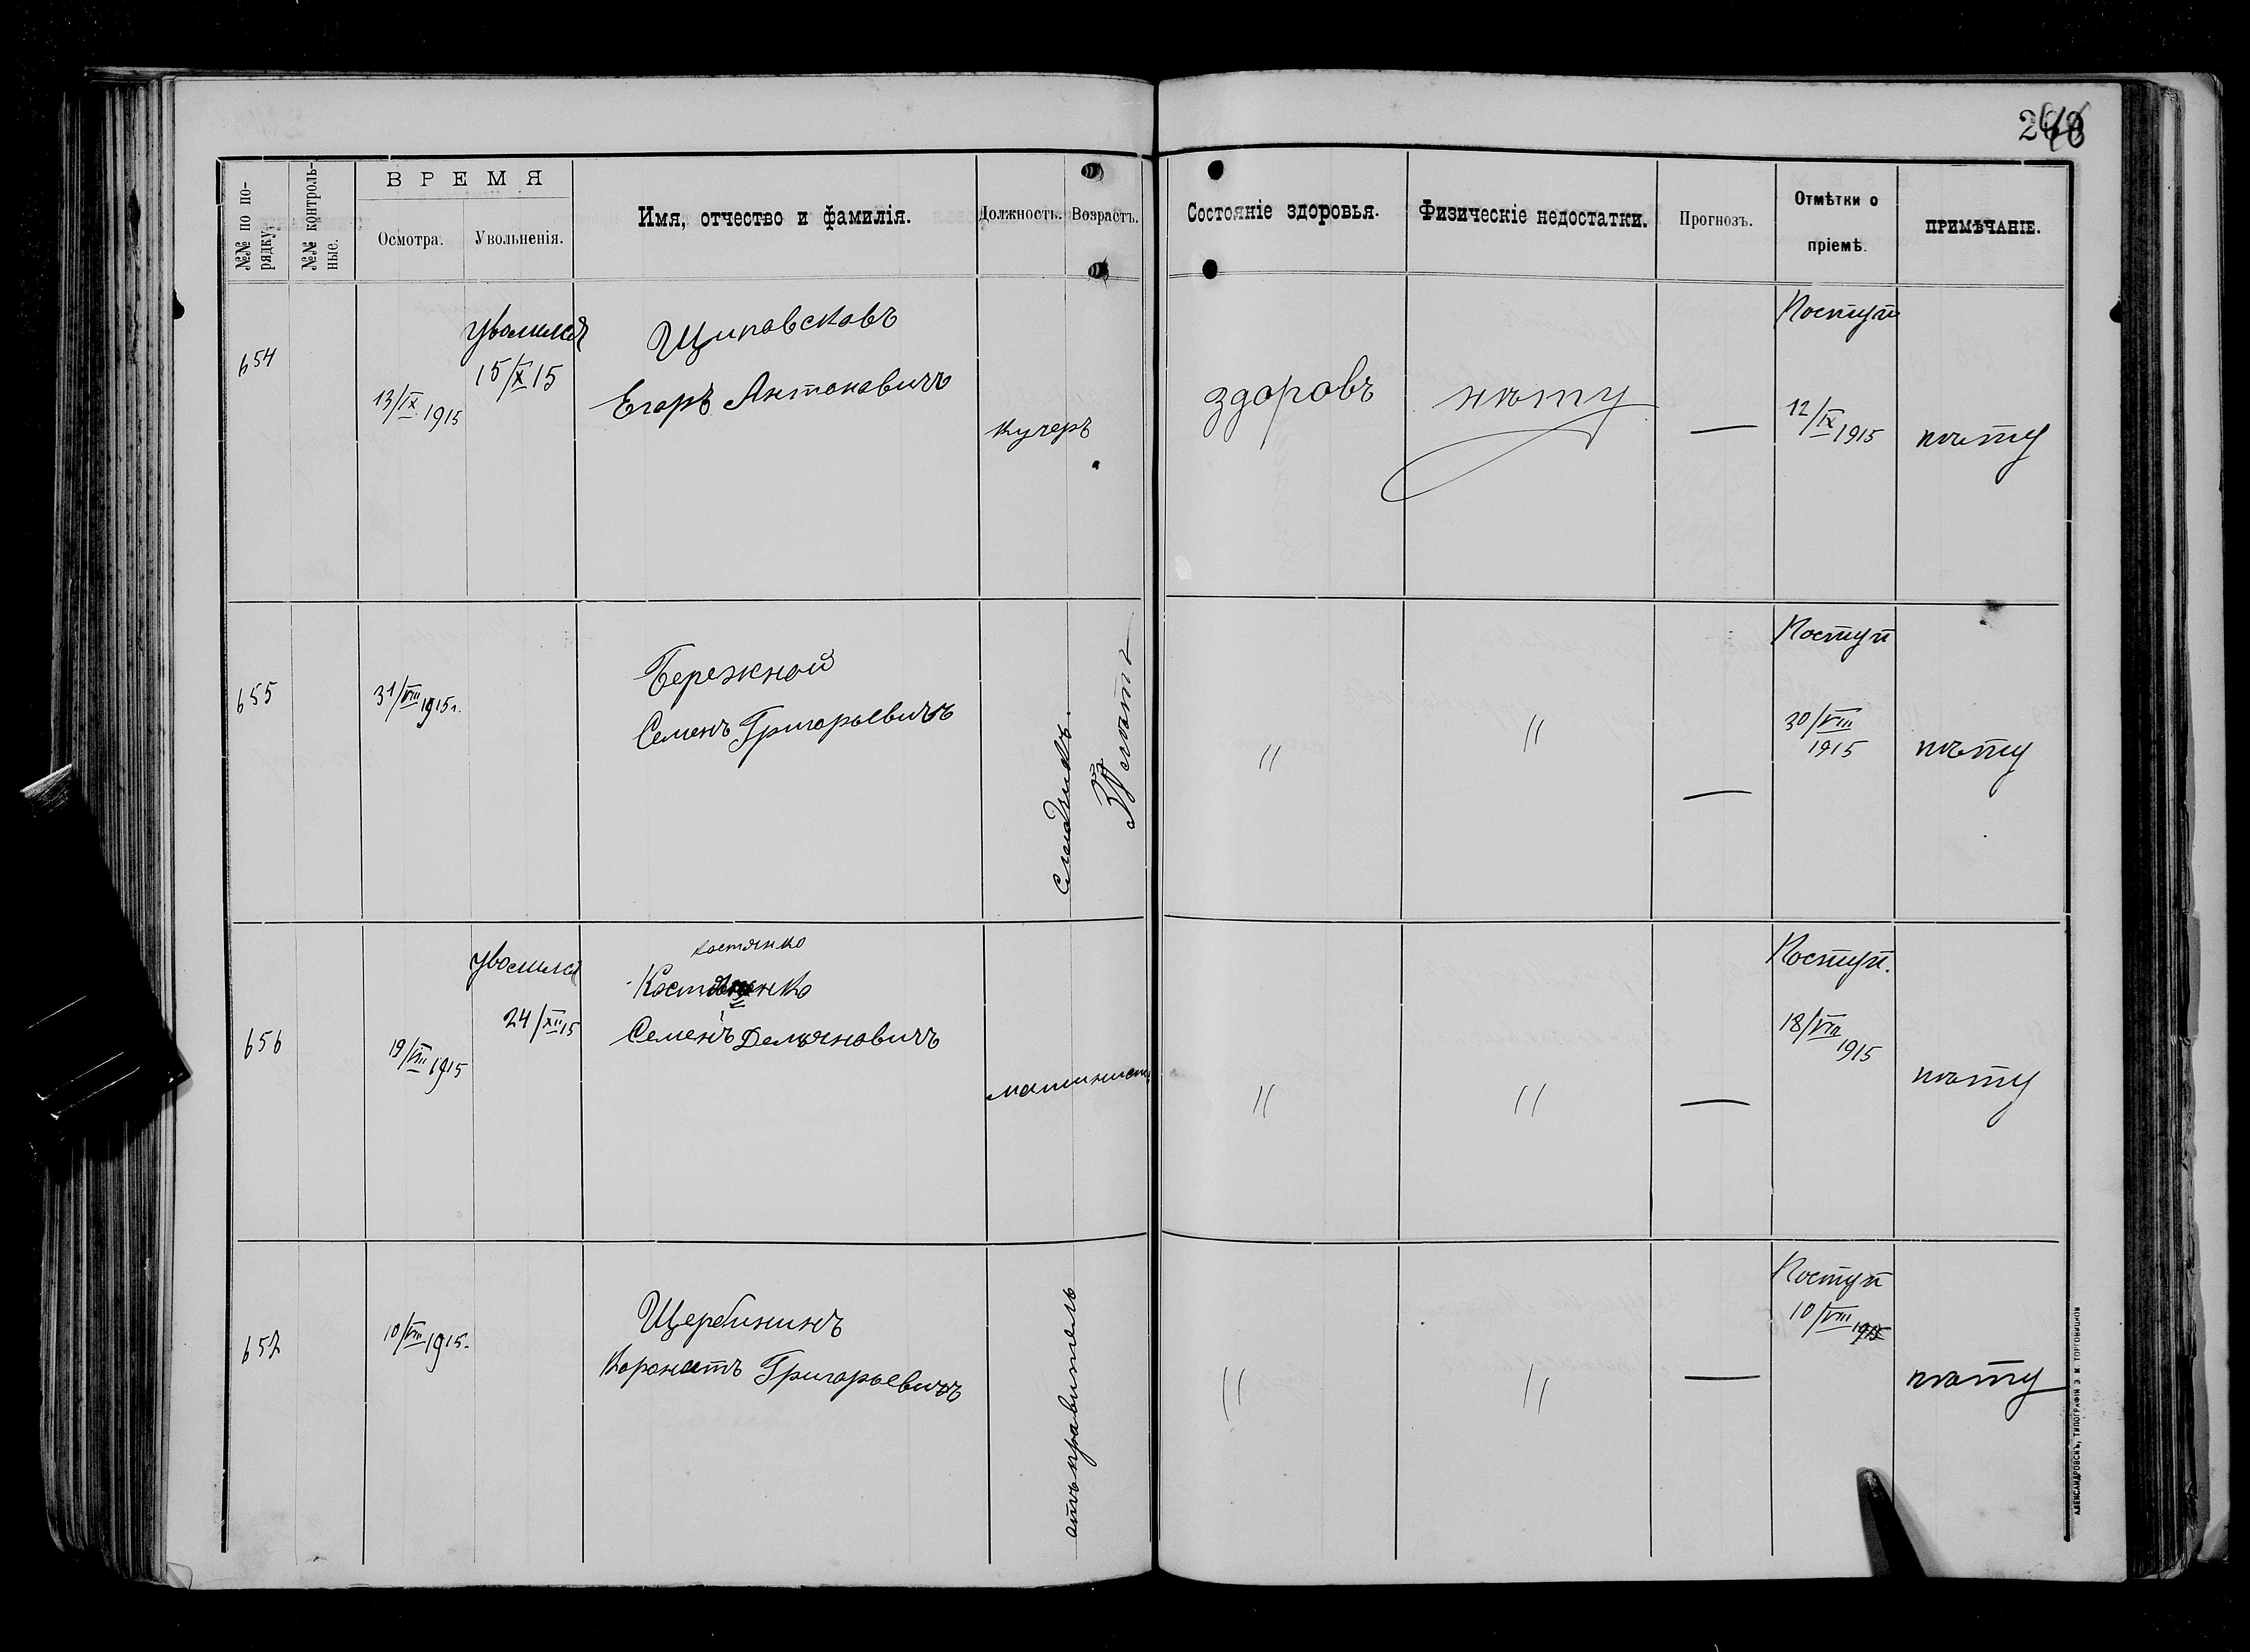 ВРЕМЯ
№№ по по-
рядку.
№№ контроль-
ные.
Осмотра.
Увольненія.
Имя, отчество и фамилія.
Должность.
Возрастъ.
Состояніе здоровья.
Физическіе недостатки.
Прогнозъ.
Отмѣтки о
пріемѣ.
ПРИМѢЧАНІЕ.
654
13/IX 1915
уволился
15/X 15
Егоръ Антоновичъ
кучеръ
здоровъ
нѣту
—
Поступи
12/IX 1915
нѣту
655
31/VIII 1915 г.
Бережной
Семенъ Григорьевичъ
лѣтъ
"
"
—
Поступ
30/VIII
1915
нѣту
656
19/VIII 1915
уволился
24/XII 15
Костянко
Семенъ Демяновичъ
машинистъ
"
"
—
Поступ.
18/VIII
1915
нѣту
657
10/VIII 1915.
Щербининъ
Коронатъ Григорьевичъ
отъправитель
"
"
—
Поступ
10/VIII 1915
нѣту
АЛЕКСАНДРОВСКЪ, ТИПОГРАФІЯ Э. И. ТОРГОВИЦКОЙ